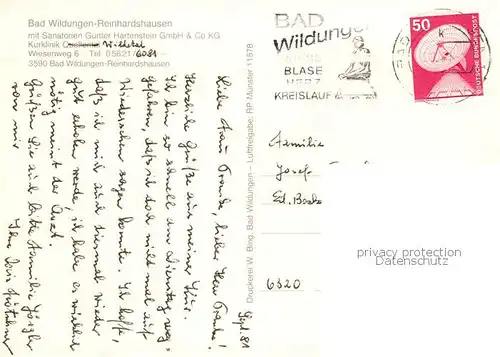 Bad Wildungen-Reinhardshausen
mit Sanatorien Günter Hartenstein GmbH & Co KG
Kurklinik Quellental Wildetal
Wiesenweg 6 Tel 05621/6081
3590 Bad Wildungen-Reinhardshausen
BAD
Wildungen
NIERE
BLASE
HERZ
KREISLAUF
50
DEUTSCHE BUNDESPOST
Sept. 81
Liebe Frau Franke, lieber Herr Franke!
Herzliche Grüße aus meiner Kur.
Ich bin so schnell am Dienstag weg-
gefahren, daß ich doch nicht mal auf
Wiedersehen sagen konnte. Ich hoffe,
daß ich mich auch diesmal wieder
gut erholen werde, ich habe es wirklich
nötig meint der Arzt.
Grüßen Sie auch bitte Familie
von mir
Ihre
Druckerei W. Bing, Bad Wildungen – Luftfreigabe, RP Münster 11578
Familie
Josef
Ed.
6320
privacy protection
Datenschutz